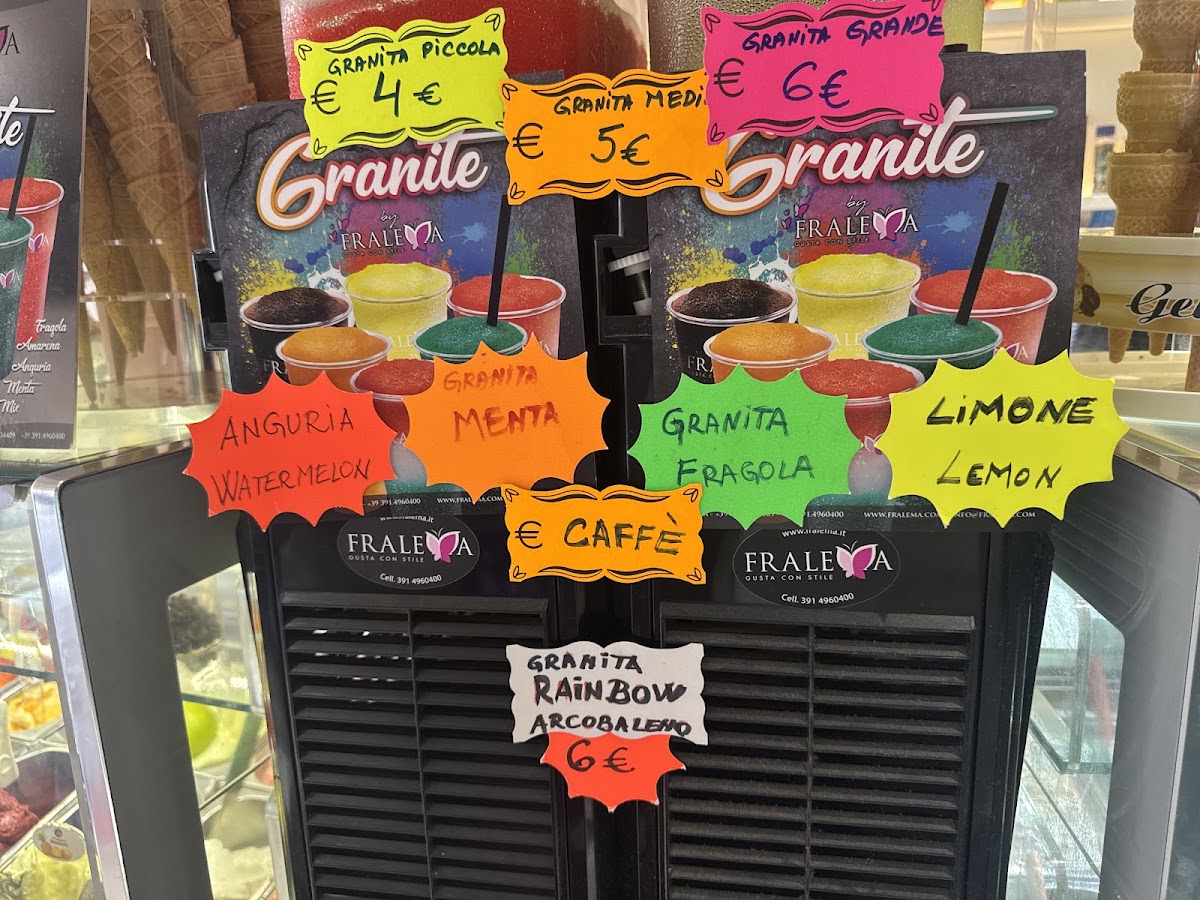 GRANITA PICCOLA
€ 4 €
GRANITA MEDI
€ 5€
GRANITA GRANDE
€ 6€
Granite
by
FRALEMA
GUSTA CON STILE
Granite
by
FRALEMA
GUSTA CON STILE
Fragola
Amarena
Anguria
Menta
Mix
+39 391.4960400
ANGURIA
WATERMELON
GRANITA
MENTA
GRANITA
FRAGOLA
LIMONE
LEMON
+39 391.4960400
WWW.FRALEMA.COM
391.4960400
WWW.FRALEMA.COM
€ CAFFÈ
www.fralema.it
FRALEMA
GUSTA CON STILE
Cell. 391 4960400
www.fralema.it
FRALEMA
GUSTA CON STILE
Cell. 391 4960400
GRANITA
RAINBOW
ARCOBALENO
6€
Ge